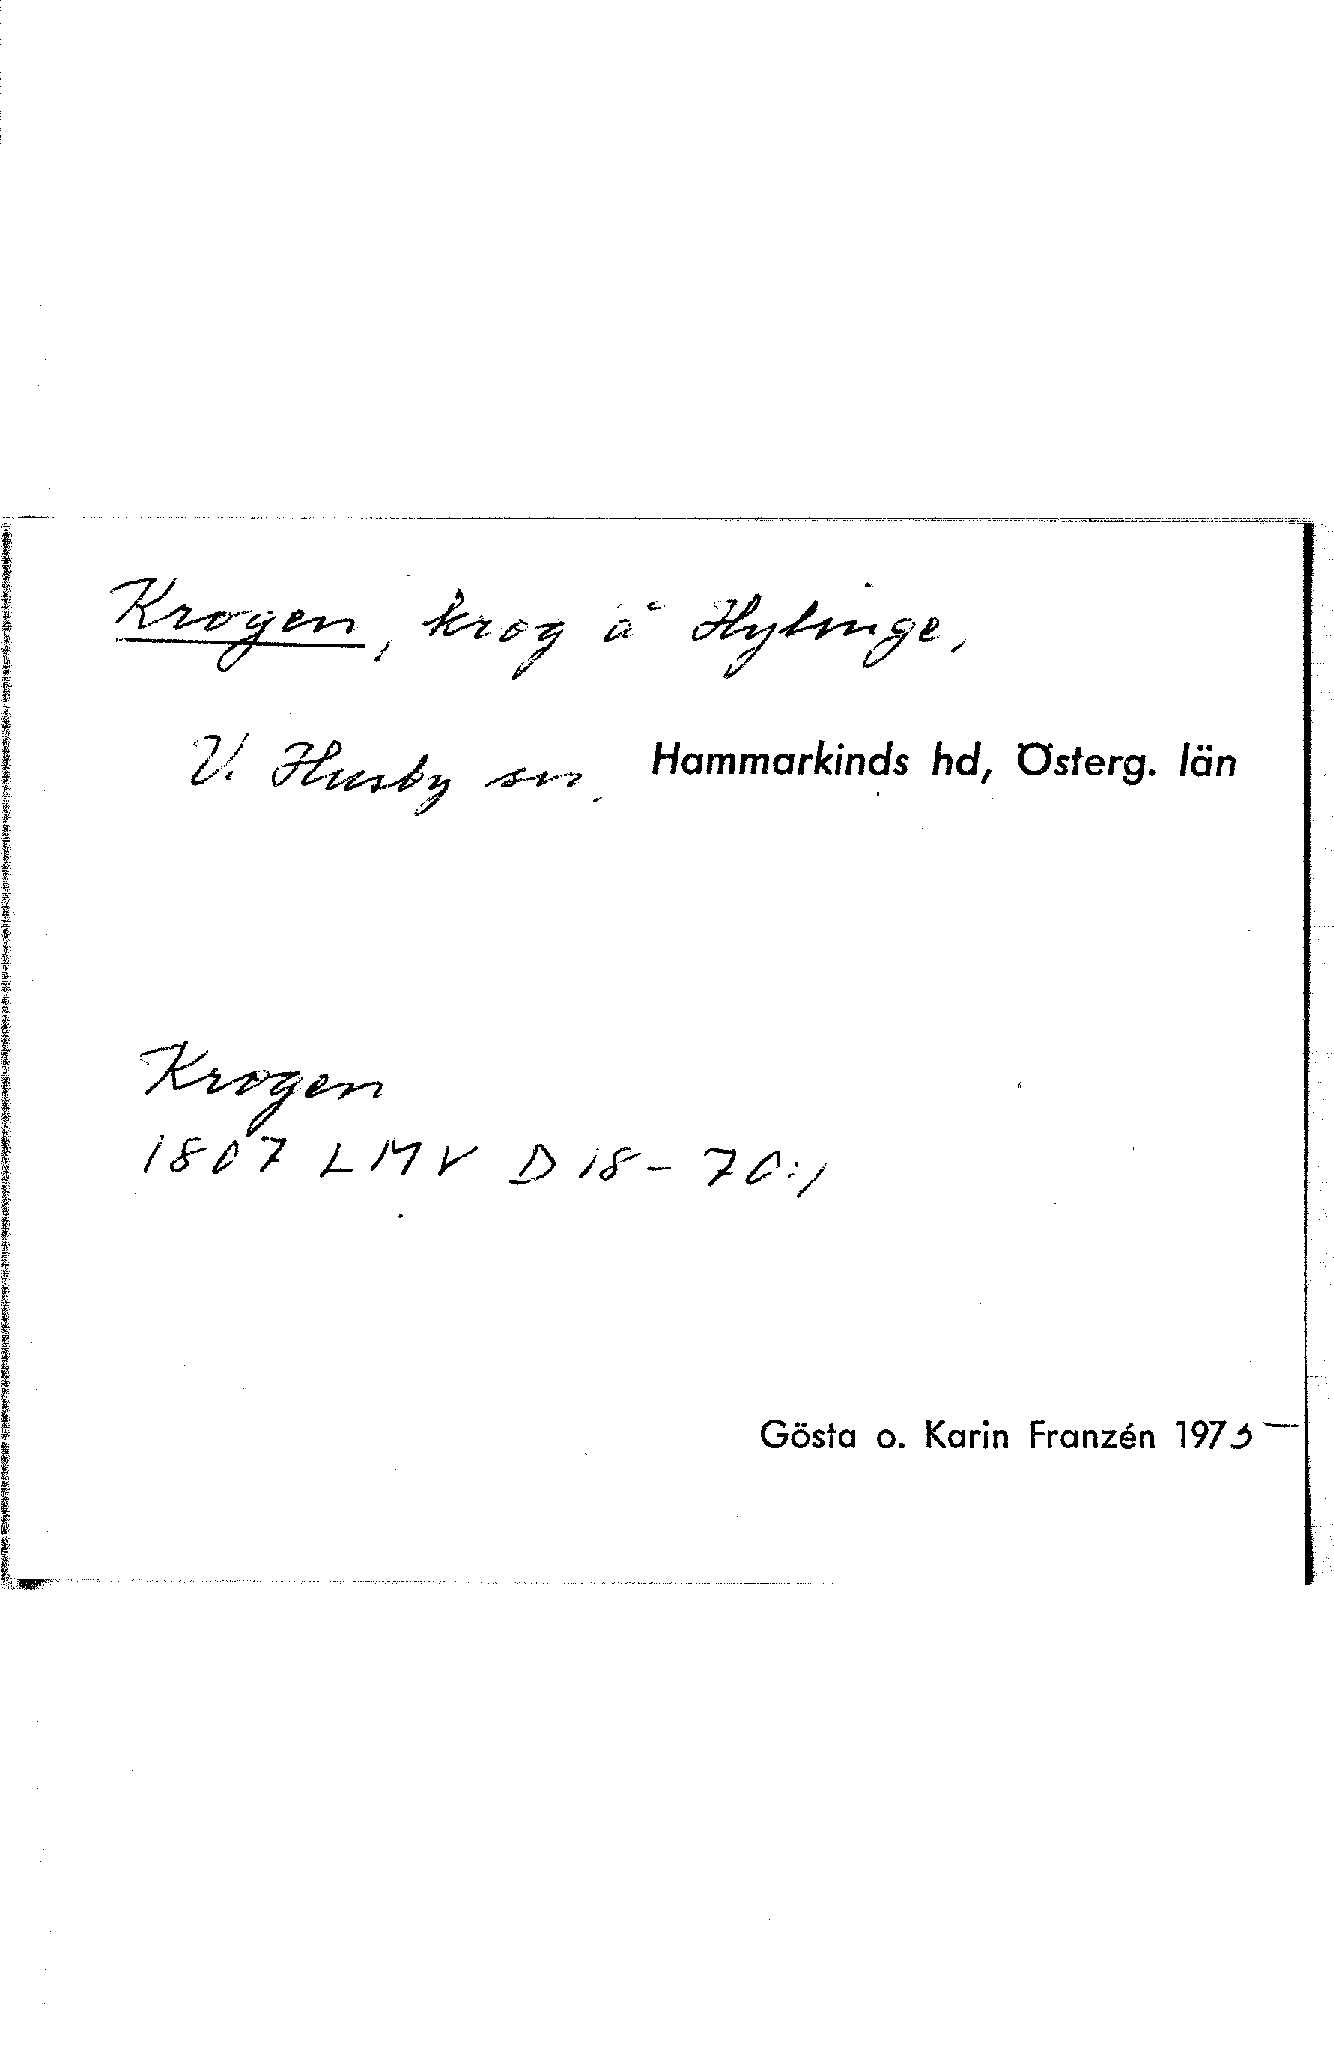 Krogen, krog å Hylinge,
V. Husby sn. Hammarkinds hd, Österg. län
Krogen
1807 LMV D 18-70:1
Gösta o. Karin Franzén 1973